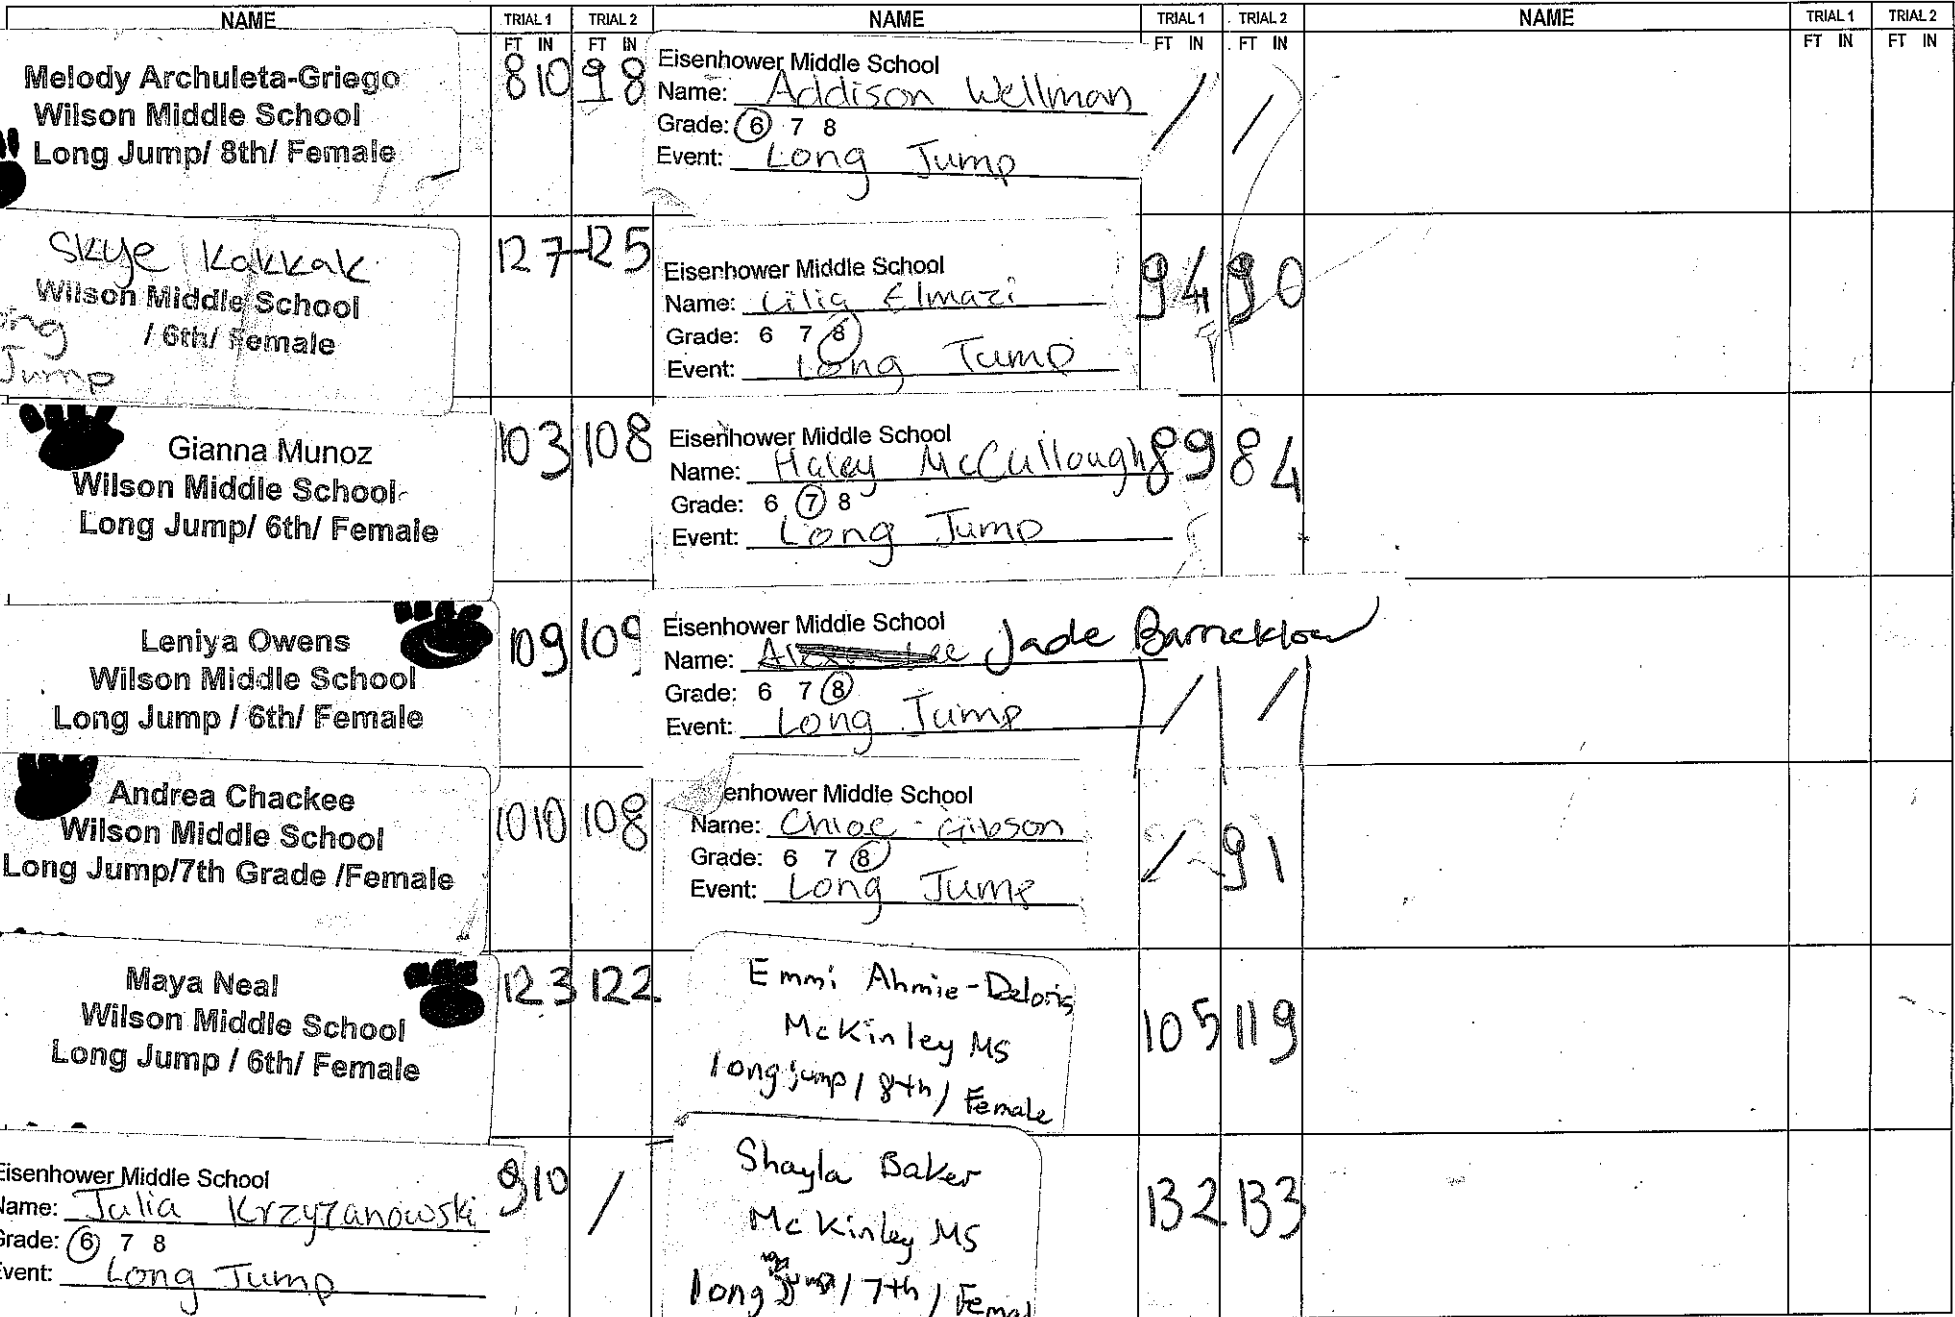 NAME TRIAL 1 TRIAL 2 NAME TRIAL 1 TRIAL 2 NAME TRIAL 1 TRIAL 2
FT IN FT IN FT IN FT IN FT IN FT IN
Melody Archuleta-Griego
Wilson Middle School
Long Jump/ 8th/ Female
8 10 9 8
Eisenhower Middle School
Name: Addison Wellman
Grade: 6 7 8
Event: Long Jump
/ /
Skye Kakkak
Wilson Middle School
/ 6th/ Female
Jump
12 7 12 5
Eisenhower Middle School
Name: Lilia Elmazi
Grade: 6 7 8
Event: Long Jump
9 4 9 0
Gianna Munoz
Wilson Middle School
Long Jump/ 6th/ Female
10 3 10 8
Eisenhower Middle School
Name: Haley McCullough
Grade: 6 7 8
Event: Long Jump
8 9 8 4
Leniya Owens
Wilson Middle School
Long Jump / 6th/ Female
10 9 10 9
Eisenhower Middle School
Name: Jade Barricklow
Grade: 6 7 8
Event: Long Jump
/ /
Andrea Chackee
Wilson Middle School
Long Jump/7th Grade /Female
10 10 10 8
enhower Middle School
Name: Chloe Gibson
Grade: 6 7 8
Event: Long Jump
/ 9 1
Maya Neal
Wilson Middle School
Long Jump / 6th/ Female
12 3 12 2
Emmi Ahmie-Deloris
McKinley MS
long jump / 8th / Female
10 5 11 9
Eisenhower Middle School
Name: Julia Krzyzanowski
Grade: 6 7 8
Event: Long Jump
9 10 /
Shayla Baker
McKinley MS
long Jump / 7th / Femal
13 2 13 3